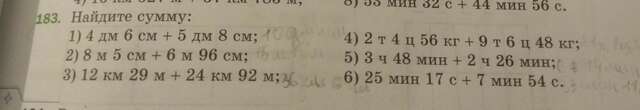 8) 53 мин 32 с + 44 мин 56 с.
183. Найдите сумму:
1) 4 дм 6 см + 5 дм 8 см;
2) 8 м 5 см + 6 м 96 см;
3) 12 км 29 м + 24 км 92 м;
4) 2 т 4 ц 56 кг + 9 т 6 ц 48 кг;
5) 3 ч 48 мин + 2 ч 26 мин;
6) 25 мин 17 с + 7 мин 54 с.